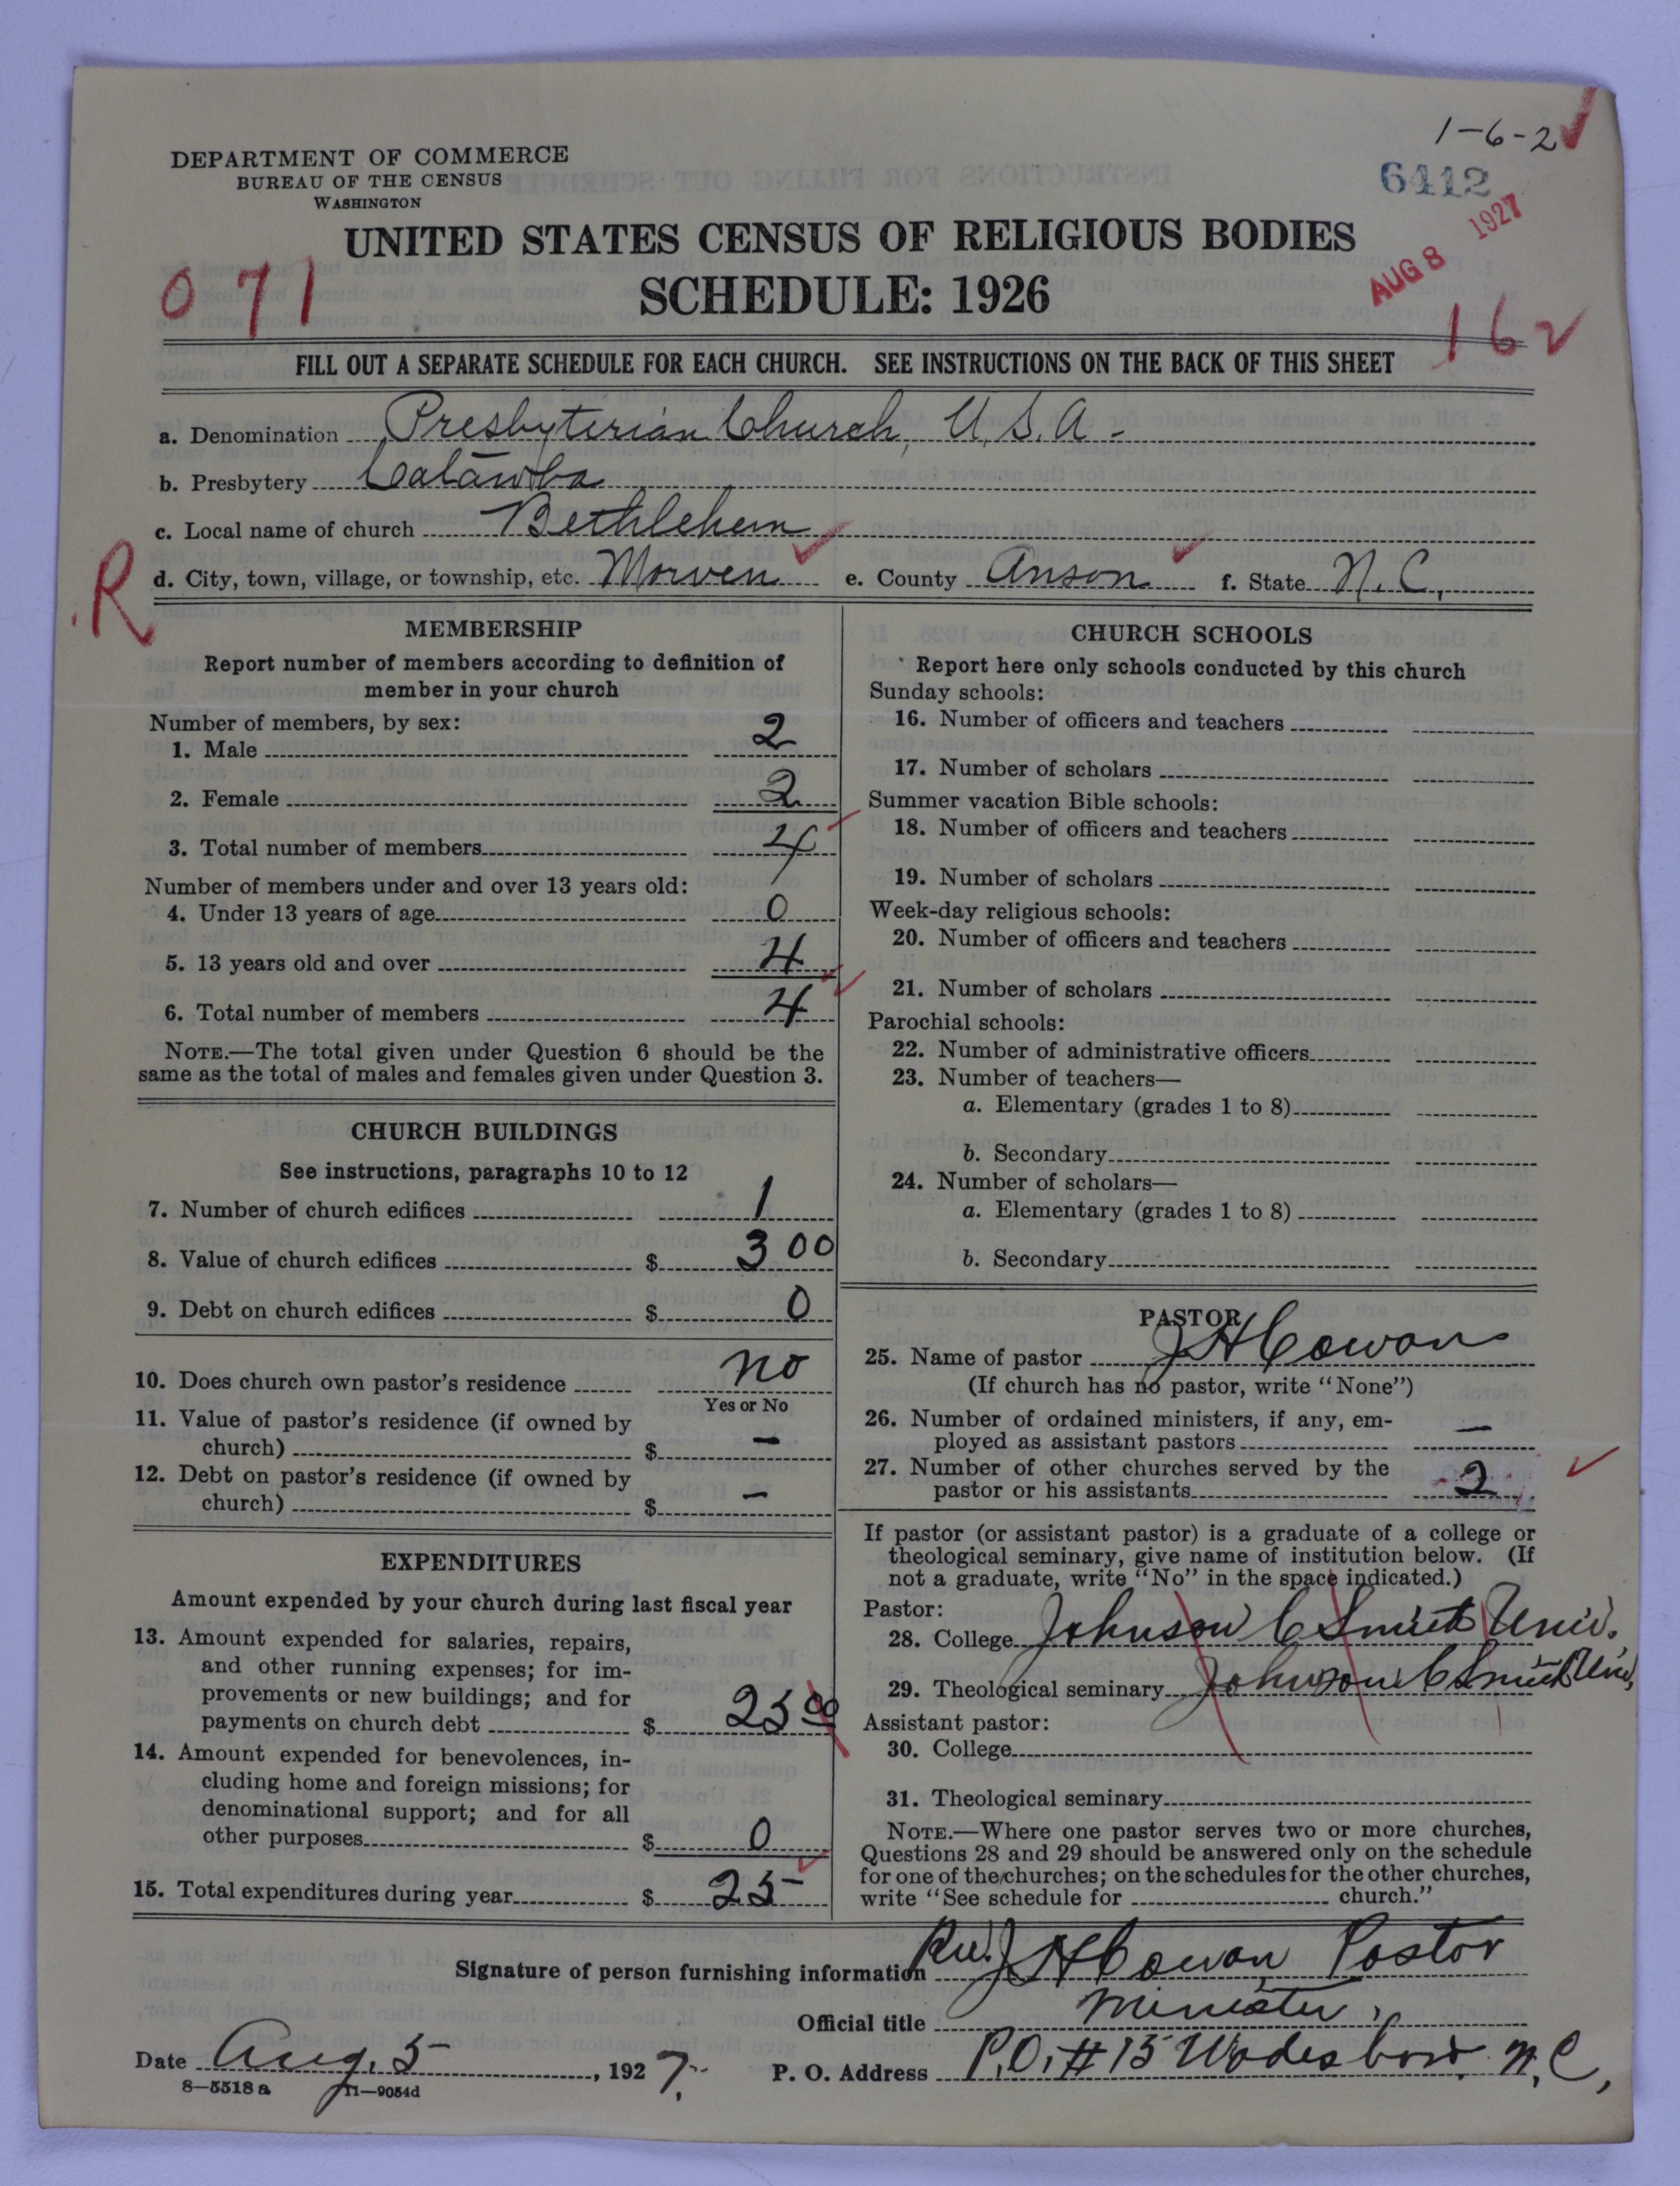 1-6-2
6412
DEPARTMENT OF COMMERCE
BUREAU OF THE CENSUS
WASHINGTON
AUG 8 1927
UNITED STATES CENSUS OF RELIGIOUS BODIES
071
SCHEDULE: 1926
162
FILL OUT A SEPARATE SCHEDULE FOR EACH CHURCH. SEE INSTRUCTIONS ON THE BACK OF THIS SHEET
a. Denomination Presbyterian Church, U.S.A.
b. Presbytery Catawba
c. Local name of church Bethlehem
R
d. City, town, village, or township, etc. Morven e. County Anson f. State N.C.
MEMBERSHIP
Report number of members according to definition of
member in your church
Number of members, by sex:
1. Male 2
2. Female 2
3. Total number of members 4
Number of members under and over 13 years old:
4. Under 13 years of age 0
5. 13 years old and over 4
6. Total number of members 4
NOTE.—The total given under Question 6 should be the
same as the total of males and females given under Question 3.
CHURCH BUILDINGS
See instructions, paragraphs 10 to 12
7. Number of church edifices 1
8. Value of church edifices $ 300
9. Debt on church edifices $ 0
10. Does church own pastor's residence no
Yes or No
11. Value of pastor's residence (if owned by
church) $ –
12. Debt on pastor's residence (if owned by
church) $ –
EXPENDITURES
Amount expended by your church during last fiscal year
13. Amount expended for salaries, repairs,
and other running expenses; for im-
provements or new buildings; and for
payments on church debt $ 25 00
14. Amount expended for benevolences, in-
cluding home and foreign missions; for
denominational support; and for all
other purposes $ 0
15. Total expenditures during year $ 25 –
CHURCH SCHOOLS
Report here only schools conducted by this church
Sunday schools:
16. Number of officers and teachers
17. Number of scholars
Summer vacation Bible schools:
18. Number of officers and teachers
19. Number of scholars
Week-day religious schools:
20. Number of officers and teachers
21. Number of scholars
Parochial schools:
22. Number of administrative officers
23. Number of teachers—
a. Elementary (grades 1 to 8)
b. Secondary
24. Number of scholars—
a. Elementary (grades 1 to 8)
b. Secondary
PASTOR
25. Name of pastor J H Cowan
(If church has no pastor, write "None")
26. Number of ordained ministers, if any, em-
ployed as assistant pastors –
27. Number of other churches served by the
pastor or his assistants 2
If pastor (or assistant pastor) is a graduate of a college or
theological seminary, give name of institution below. (If
not a graduate, write "No" in the space indicated.)
Pastor:
28. College Johnson C Smith Univ.
29. Theological seminary Johnson C Smith Univ,
Assistant pastor:
30. College
31. Theological seminary
NOTE.—Where one pastor serves two or more churches,
Questions 28 and 29 should be answered only on the schedule
for one of the churches; on the schedules for the other churches,
write "See schedule for church."
Signature of person furnishing information Rev. J H Cowan Pastor
Official title Minister,
Date Aug. 5 , 1927. P. O. Address P.O. # 15 Wadesboro N.C,
8—5518 a 11—9054d